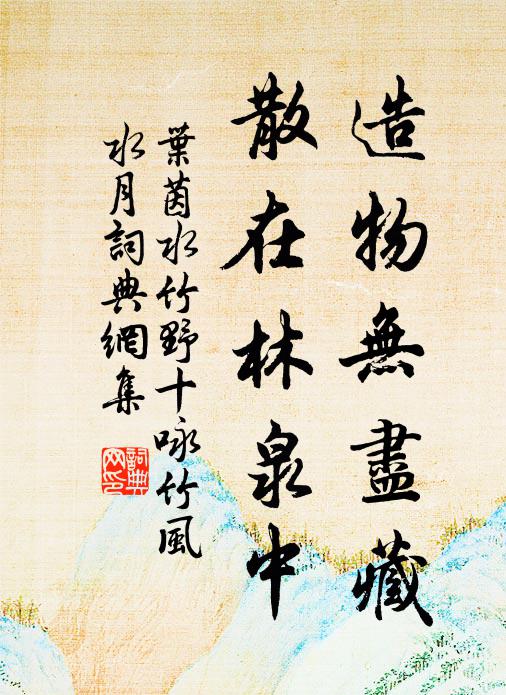 造物無盡藏
散在林泉中
葉茵水竹野十咏竹風
水月詞典網集
詞典
网印